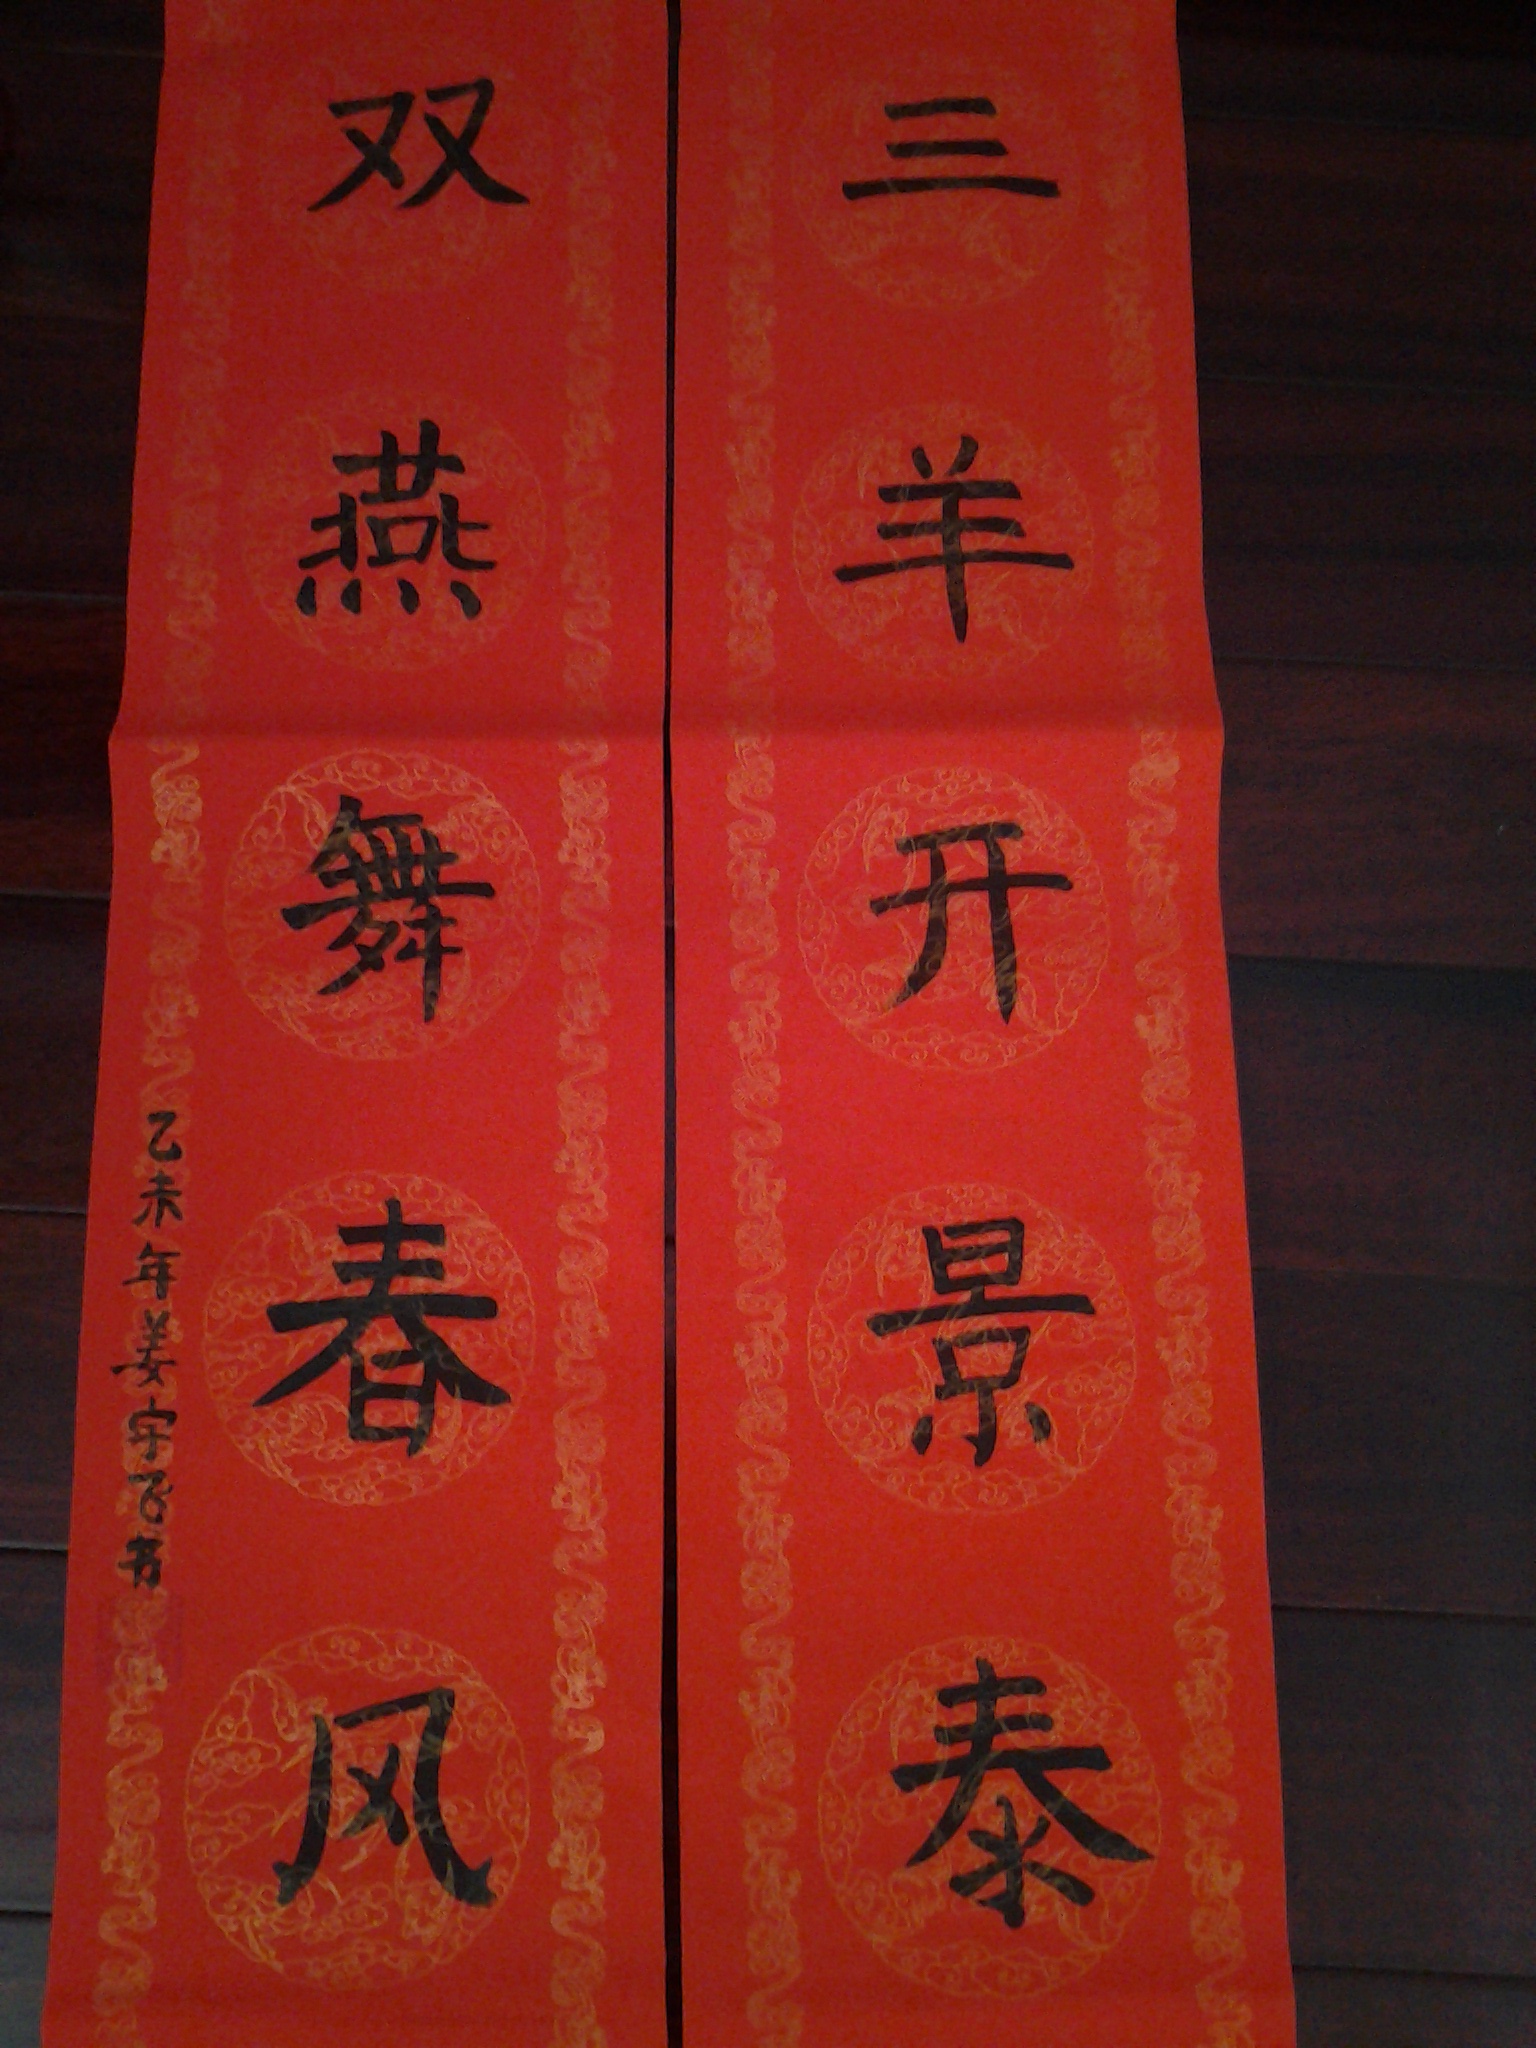 三羊开景泰
双燕舞春风
乙未年姜宇飞书